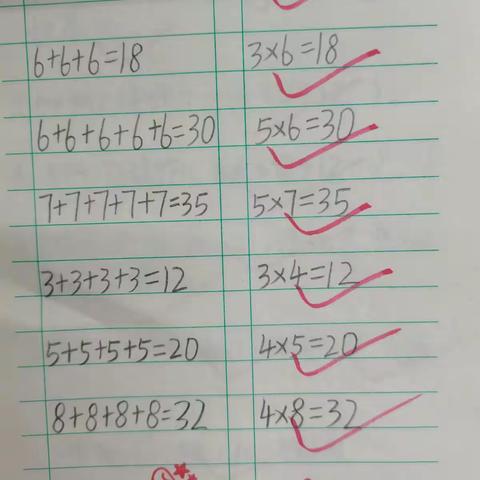 6+6+6=18 3×6=18
6+6+6+6+6=30 5×6=30
7+7+7+7+7=35 5×7=35
3+3+3+3=12 3×4=12
5+5+5+5=20 4×5=20
8+8+8+8=32 4×8=32